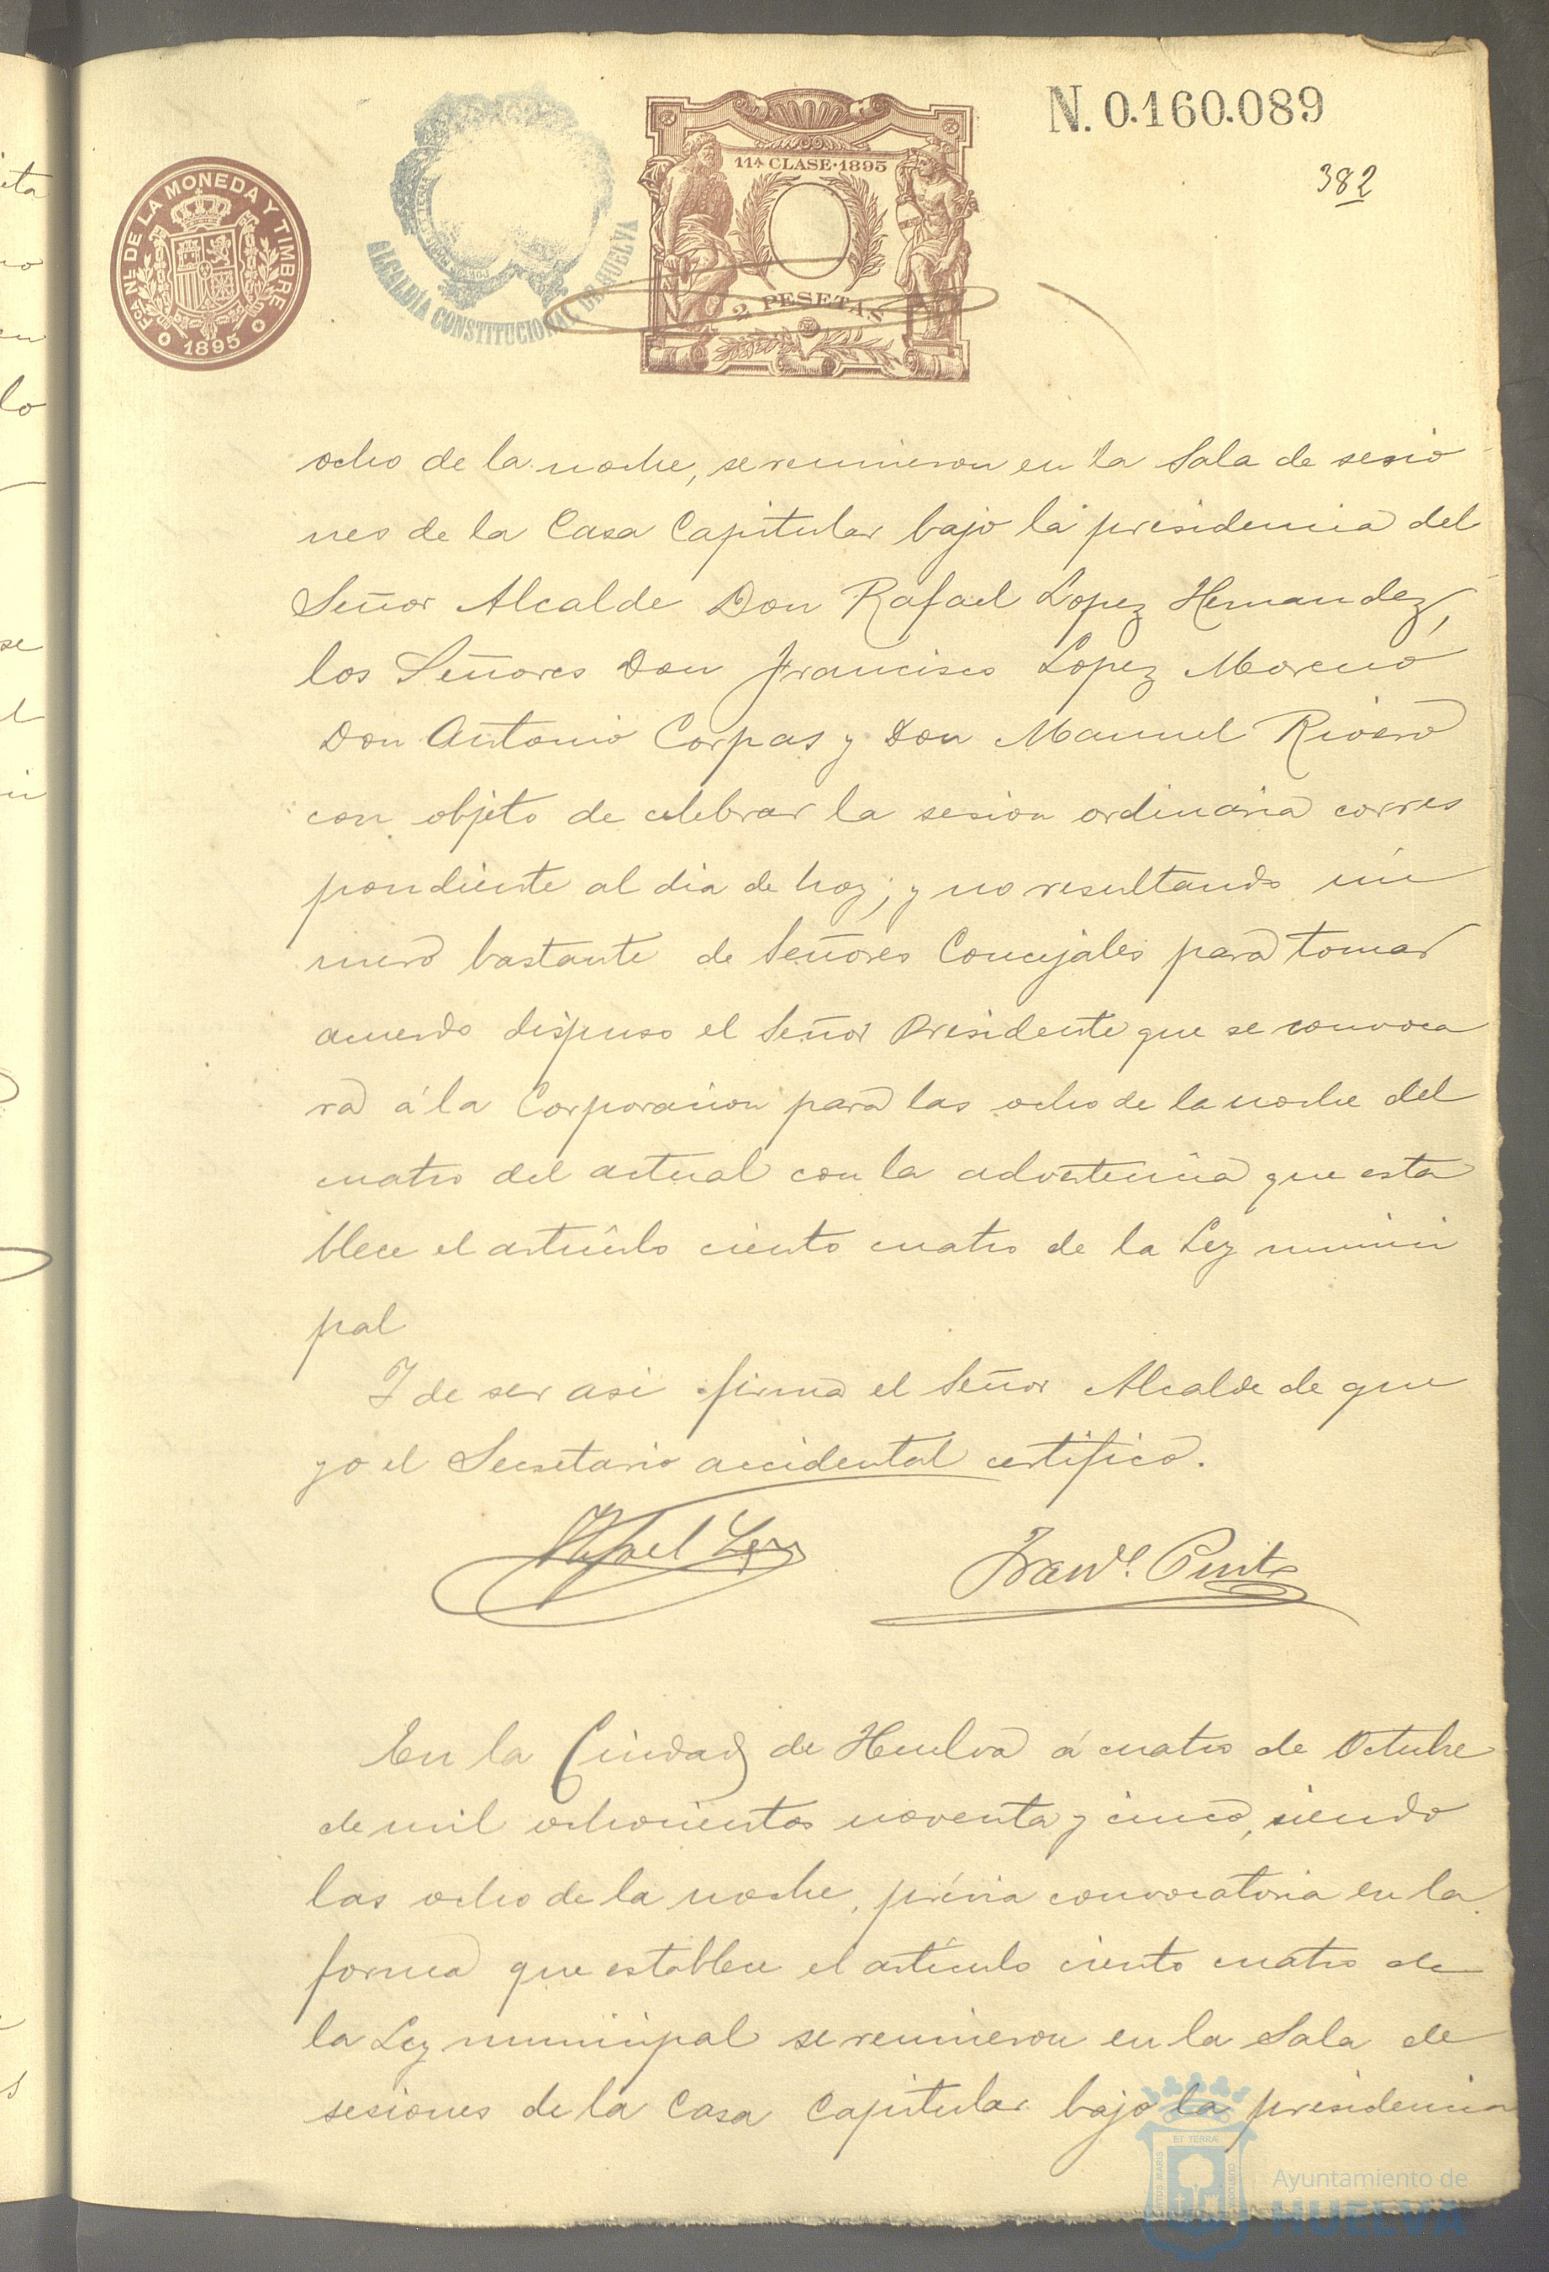 N. 0.160.089
382
FCA. NL. DE LA MONEDA Y TIMBRE
1895
ALCALDÍA CONSTITUCIONAL DE HUELVA
11ª CLASE·1895
2 PESETAS
ocho de la noche, se reunieron en la Sala de sesio
nes de la Casa Capitular bajo la presidencia del
Señor Alcalde Don Rafael Lopez Hernandez,
los Señores Don Francisco Lopez Moreno
Don Antonio Corpas y Don Manuel Rivero
con objeto de celebrar la sesion ordinaria corres
pondiente al dia de hoy; y no resultando nú
mero bastante de Señores Concejales para tomar
acuerdo dispuso el Señor Presidente que se convoca
ra á la Corporacion para las ocho de la noche del
cuatro del actual con la advertencia que esta
blece el artículo ciento cuatro de la Ley munici
pal
Y de ser asi firma el Señor Alcalde de que
yo el Secretario accidental certifico.
Rafael Lopez
En la Ciudad de Huelva á cuatro de Octubre
de mil ochocientos noventa y cinco, siendo
las ocho de la noche, prévia convocatoria en la
forma que establece el artículo ciento cuatro de
la Ley municipal se reunieron en la Sala de
sesiones de la Casa Capitular bajo la presidencia
Ayuntamiento de
HUELVA